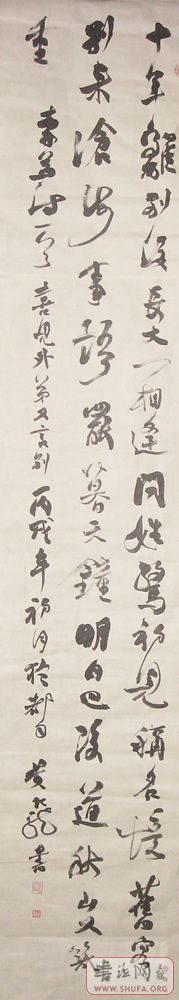 十年離亂後長大一相逢問姓驚初見稱名憶舊容
別來滄海事語罷暮天鐘明日巴陵道秋山又幾
重 李益詩一首喜見外弟又言別 丙戌年初月於都 黄龍書
書法网
WWW.SHUFA.ORG